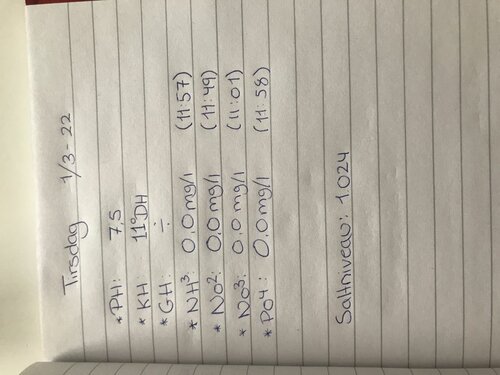 Tirsdag 1/3-22
* PH: 7,5
* KH: 11°DH
* GH: ÷
* NH³: 0,0 mg/l (11:57)
* NO²: 0,0 mg/l (11:49)
* NO³: 0,0 mg/l (11:01)
* PO4: 0,0 mg/l (11:58)
Saltniveau: 1024